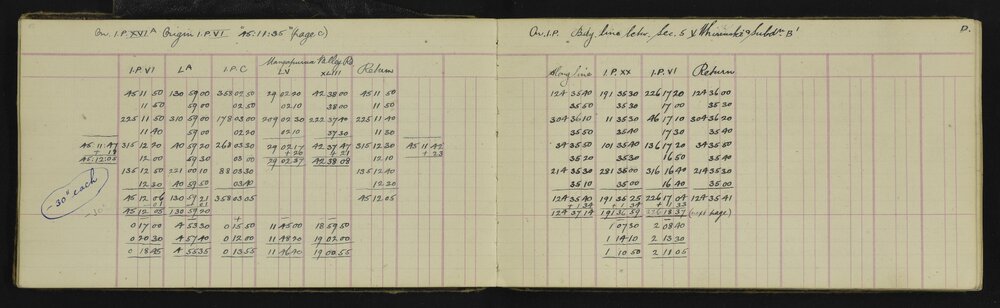 On I.P. XVI A Origin I.P. VI "45:11:35" (page C)
I.P. VI LA I.P. C Mangapurua Valley Rd LV XLIII Return
45 11 50 130 59 00 358 02 50 29 02 20 42 38 00 45 11 50
11 50 59 00 02 50 02 10 38 00 11 50
225 11 50 310 59 00 178 03 00 209 02 30 222 37 40 225 11 40
11 40 59 00 02 20 02 10 37 30 11 30
45 11 47 315 12 20 40 59 20 268 03 30 29 02 17 42 37 47 315 12 30 45 11 42
+ 18 + 20 + 21 + 23
45:12:05 12 00 59 30 03 00 29 02 37 42 38 08 12 10
135 12 50 221 00 10 88 03 30 135 12 40
12 30 40 59 50 03 40 12 20
-30" each
45 12 06 130 59 21 358 03 05 45 12 05
-01 -01
45 12 05 130 59 20
0 17 00 4 53 30 0 15 50 11 45 00 18 59 50
0 20 30 4 57 40 0 12 00 11 48 20 19 02 00
0 18 45 4 55 35 0 13 55 11 46 40 19 00 55
On I.P. Bdy line betw. Sec. 5 & Subdn B' D.
Along line I.P. XX I.P. VI Return
124 35 40 191 35 30 226 17 20 124 36 00
35 50 35 30 17 00 35 30
304 36 10 11 35 30 46 17 10 304 36 20
35 50 35 40 17 30 35 40
34 35 50 101 35 40 136 17 20 34 35 50
35 20 35 30 16 50 35 40
214 35 30 281 35 00 316 16 40 214 35 30
35 10 35 00 16 40 35 00
124 35 40 191 35 25 226 17 04 124 35 41
+1 34 +1 34 +1 33
124 37 14 191 36 59 226 18 37 (next page)
1 07 30 2 08 40
1 14 10 2 13 30
1 10 50 2 11 05